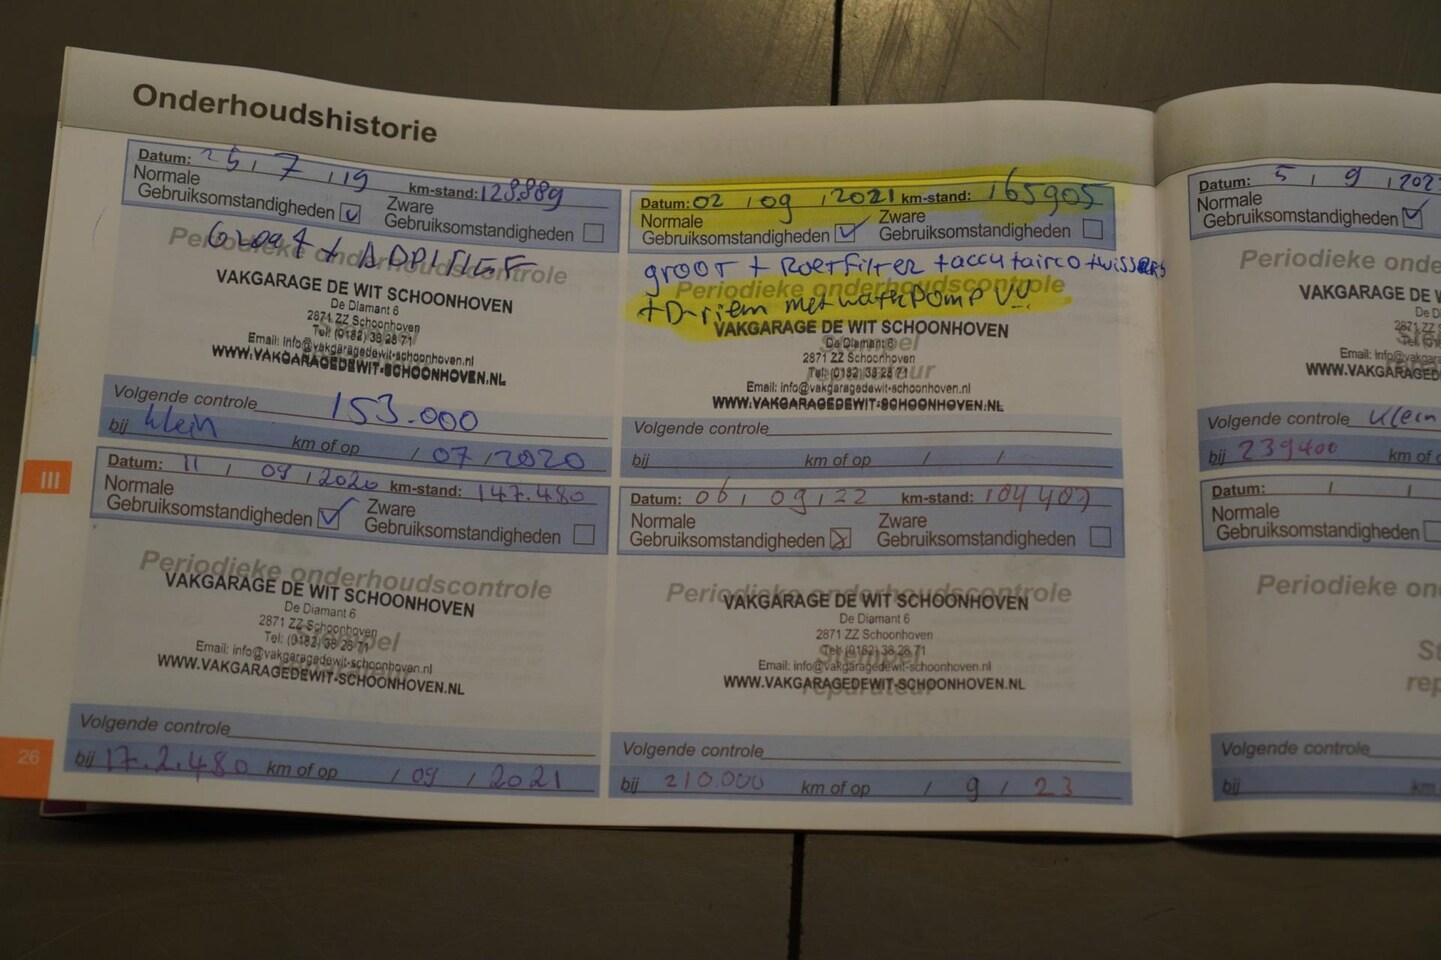 Onderhoudshistorie
Datum: 25 / 7 / 19 km-stand: 128.889
Normale Gebruiksomstandigheden
Zware Gebruiksomstandigheden
Groot + ADDITIEF
Periodieke onderhoudscontrole
VAKGARAGE DE WIT SCHOONHOVEN
De Diamant 6
2871 ZZ Schoonhoven
Tel: (0182) 38 28 71
Email: info@vakgaragedewit-schoonhoven.nl
WWW.VAKGARAGEDEWIT-SCHOONHOVEN.NL
Volgende controle 153.000
bij klein km of op / 07 / 2020
III
Datum: 11 / 09 / 2020 km-stand: 147.480
Normale Gebruiksomstandigheden
Zware Gebruiksomstandigheden
Periodieke onderhoudscontrole
VAKGARAGE DE WIT SCHOONHOVEN
De Diamant 6
2871 ZZ Schoonhoven
Stempel
Tel: (0182) 38 28 71
Email: info@vakgaragedewit-schoonhoven.nl
reparateur
WWW.VAKGARAGEDEWIT-SCHOONHOVEN.NL
Volgende controle
26
bij 17.2.480 km of op / 09 / 2021
Datum: 02 / 09 / 2021 km-stand: 165905
Normale Gebruiksomstandigheden
Zware Gebruiksomstandigheden
groot + Roetfilter + accu + airco + wissers
Periodieke onderhoudscontrole
+ D-riem met waterpomp V!!
VAKGARAGE DE WIT SCHOONHOVEN
De Diamant 6
Stempel
2871 ZZ Schoonhoven
Tel: (0182) 38 28 71
reparateur
Email: info@vakgaragedewit-schoonhoven.nl
WWW.VAKGARAGEDEWIT-SCHOONHOVEN.NL
Volgende controle
bij km of op / /
Datum: 06 / 09 / 22 km-stand:
Normale Gebruiksomstandigheden
Zware Gebruiksomstandigheden
Periodieke onderhoudscontrole
VAKGARAGE DE WIT SCHOONHOVEN
De Diamant 6
2871 ZZ Schoonhoven
Stempel
Tel: (0182) 38 28 71
Email: info@vakgaragedewit-schoonhoven.nl
WWW.VAKGARAGEDEWIT-SCHOONHOVEN.NL
reparateur
Volgende controle
bij 210.000 km of op / 9 / 23
Datum: 5 / 9 / 202
Normale
Gebruiksomstandigheden
Periodieke onde
VAKGARAGE DE W
De D
2871 ZZ
Email: info@vakgara
WWW.VAKGARAGED
Volgende controle klein
bij 239400 km of o
Datum: / /
Normale
Gebruiksomstandigheden
Periodieke on
St
rep
Volgende controle
bij km